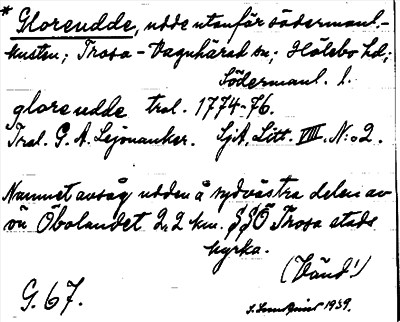 * Gloreudde, udde utanför södermanl.-
kusten; Trosa-Vagnhärad sn; Hölebo hd;
Södermanl. l.
glore udde tral. 1774-76
Tral. G. A. Lejonanker. SjA, Litt. VIII. N:o 2.
Namnet avsåg udden å sydvästra delen av
ön Öbolandet 2,2 km. SSÖ Trosa stads
kyrka.
(Vänd!)
G. 67.
1939.